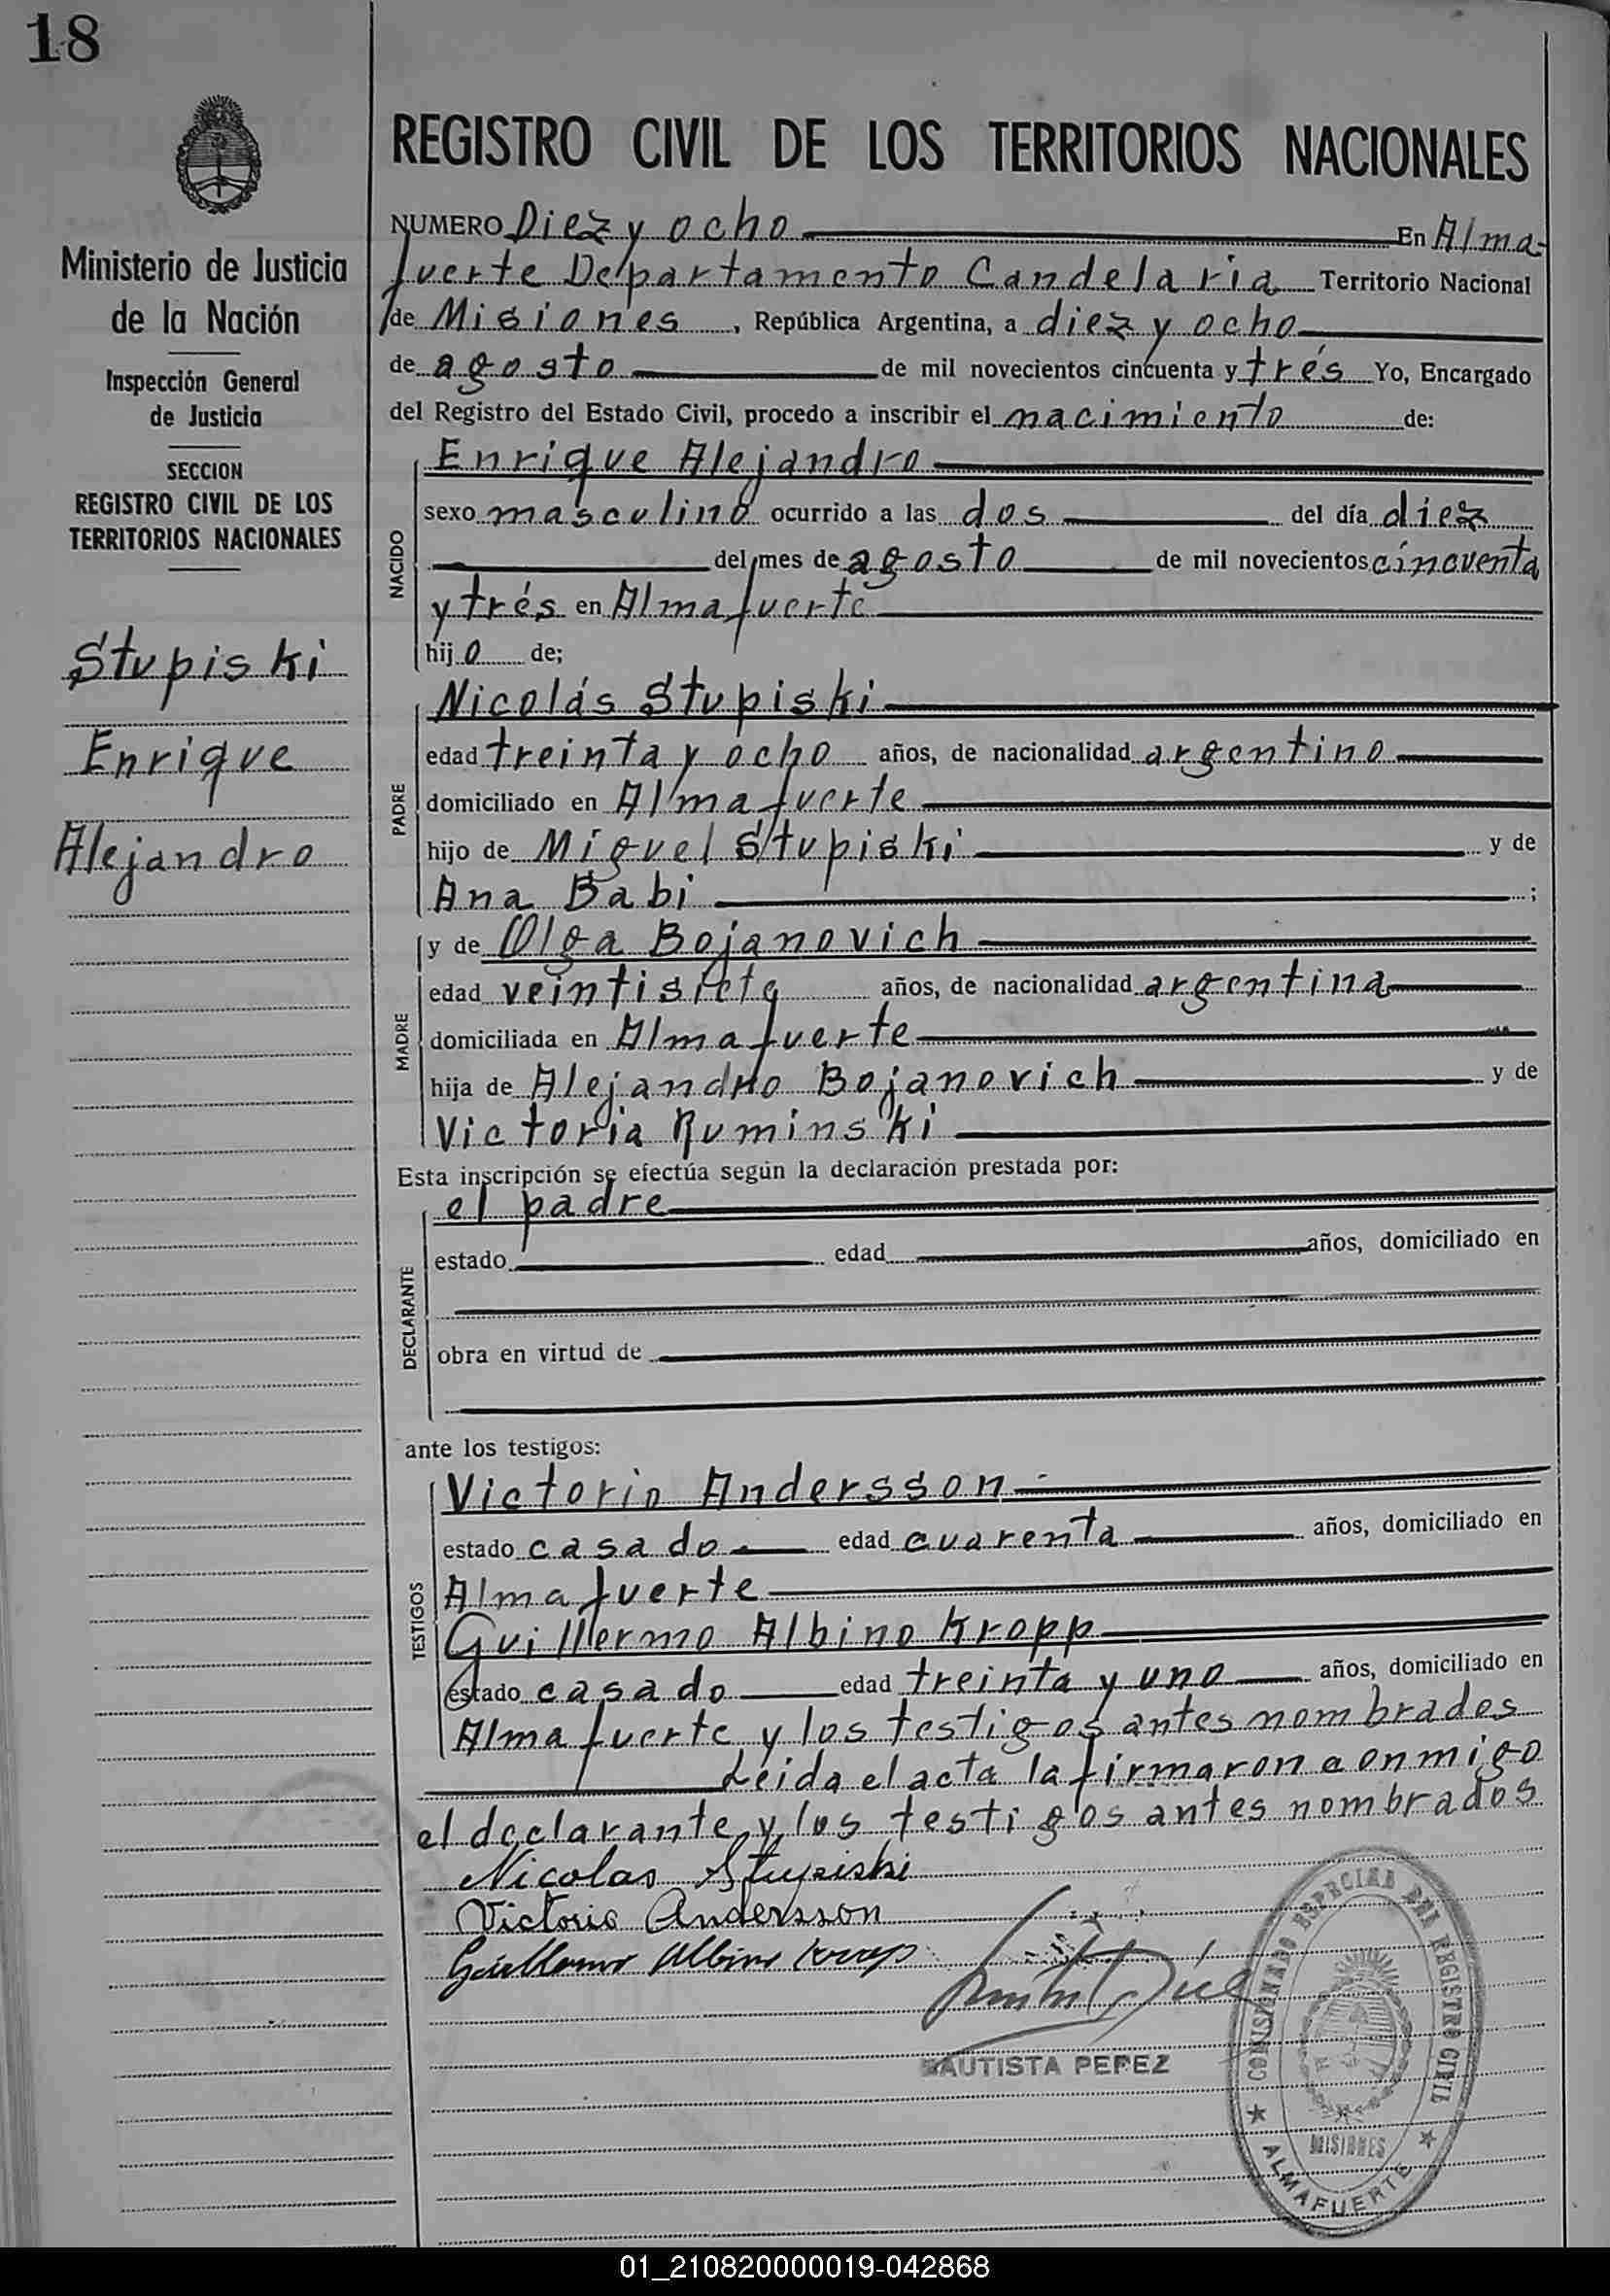 18
Ministerio de Justicia
de la Nación
Inspección General
de Justicia
SECCION
REGISTRO CIVIL DE LOS
TERRITORIOS NACIONALES
Stupiski
Enrique
Alejandro
REGISTRO CIVIL DE LOS TERRITORIOS NACIONALES
NUMERO Diez y ocho En Alma-
fuerte Departamento Candelaria Territorio Nacional
de Misiones, República Argentina, a diez y ocho
de agosto de mil novecientos cincuenta y trés Yo, Encargado
del Registro del Estado Civil, procedo a inscribir el nacimiento de:
NACIDO
Enrique Alejandro
sexo masculino ocurrido a las dos del día diez
del mes de agosto de mil novecientos cincuenta
y trés en Almafuerte
hijo de;
PADRE
Nicolás Stupiski
edad treinta y ocho años, de nacionalidad argentino
domiciliado en Almafuerte
hijo de Miguel Stupiski y de
Ana Babi ;
MADRE
y de Olga Bojanovich
edad veintisiete años, de nacionalidad argentina
domiciliada en Almafuerte
hija de Alejandro Bojanovich y de
Victoria Ruminski
Esta inscripción se efectúa según la declaración prestada por:
DECLARANTE
el padre
estado edad años, domiciliado en
obra en virtud de
ante los testigos:
TESTIGOS
Victorio Andersson
estado casado edad cuarenta años, domiciliado en
Almafuerte
Guillermo Albino Kropp
estado casado edad treinta y uno años, domiciliado en
Almafuerte y los testigos antes nombrados
Leida el acta la firmaron conmigo
el declarante y los testigos antes nombrados
Nicolas Stupiski
Victorio Andersson
Guillermo Albino Kropp
BAUTISTA PEREZ
COMISIONADO ESPECIAL DEL REGISTRO CIVIL
MISIONES
ALMAFUERTE
01_210820000019-042868